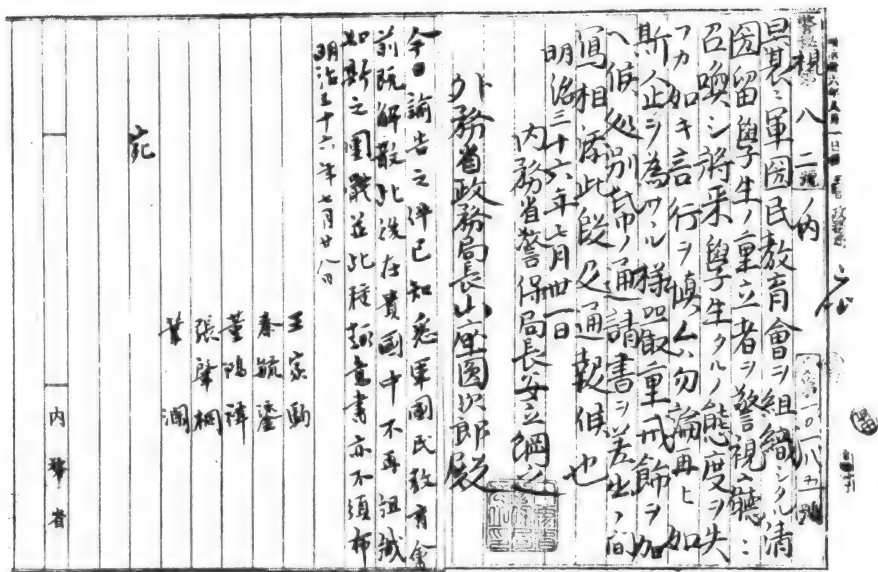 警視第八二號ノ内
曩ニ軍国民教育會ヲ組織シタル清
国留學生ノ重立者ヲ警視廳ニ
召喚シ将来學生タルノ態度ヲ失
フカ如キ言行ヲ慎ムハ勿論再ヒ如
斯企ヲ為サヽル様嚴重戒飾ヲ加
ヘ候処別帋ノ通請書ヲ差出ノ間
寫相添此段及通報候也
明治三十六年七月卅一日
内務省警保局長安立綱之
外務省政務局長山座圓次郎殿
今日諭告之件已知悉軍国民教育會
前既解散此後在貴国中不再組織
如斯之團體並此種類意書亦不須布
明治三十六年七月廿八日
王家駒
秦毓鎏
董鴻禕
張肇桐
葉瀾
宛
内務省